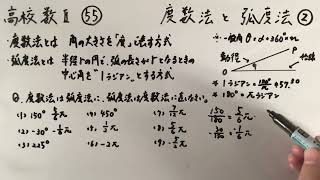 高校数Ⅱ 55 度数法と弧度法②
・度数法とは 角の大きさを「度」で表す方式
・弧度法とは 半径1の円で、弧の長さが1となるときの
中心角を"1ラジアン"とする方式
Q. 度数法は弧度法に、弧度法は度数法に直しなさい。
(1) 150° 5/6π (4) 450° (7) 7/12π
(2) -30° -1/6π (5) 1/3π (8) 5/6π
(3) 225° (6) -2π (9) -5/2π
一般角 θ=α+360°×n
動径
P
θ
O
始線
*1ラジアン=180°/π≒57.3°
*180°=πラジアン
150/180=5/6π
-30/180=-1/6π